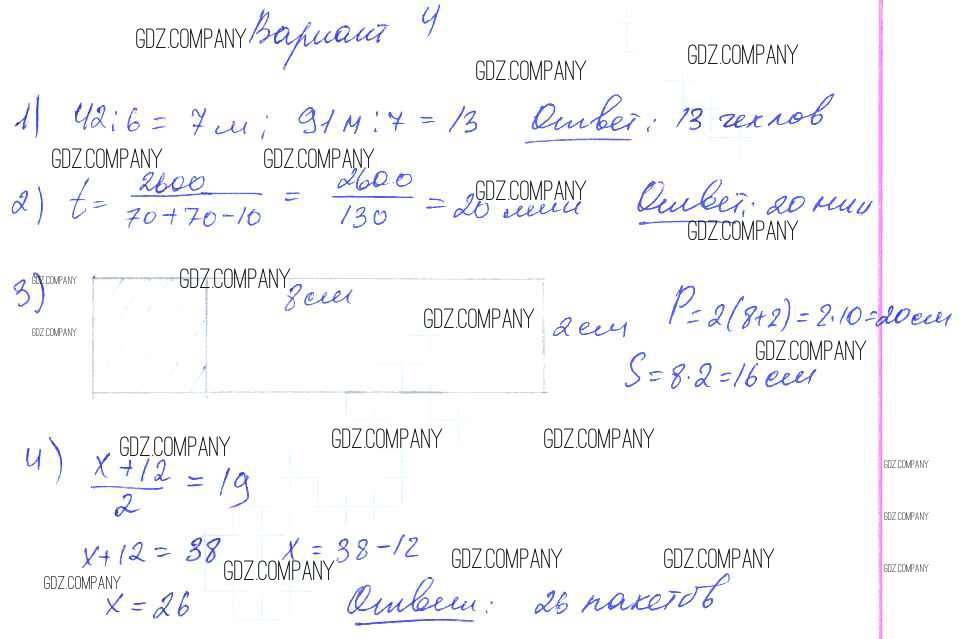 GDZ.COMPANY Вариант 4
GDZ.COMPANY GDZ.COMPANY
1) 42:6 = 7 м; 91 м:7 = 13 Ответ: 13 чехлов
GDZ.COMPANY GDZ.COMPANY
2) t = 2600 / 70+70-10 = 2600 / 130 = 20 мин Ответ: 20 мин
GDZ.COMPANY GDZ.COMPANY
3) GDZ.COMPANY GDZ.COMPANY
8 см
GDZ.COMPANY GDZ.COMPANY 2 см P = 2(8+2) = 2·10 = 20 см
GDZ.COMPANY
S = 8·2 = 16 см
GDZ.COMPANY GDZ.COMPANY GDZ.COMPANY
4) x+12 / 2 = 19
GDZ.COMPANY
GDZ.COMPANY
x+12 = 38 x = 38-12
GDZ.COMPANY GDZ.COMPANY GDZ.COMPANY GDZ.COMPANY GDZ.COMPANY
x = 26 Ответ: 26 пакетов